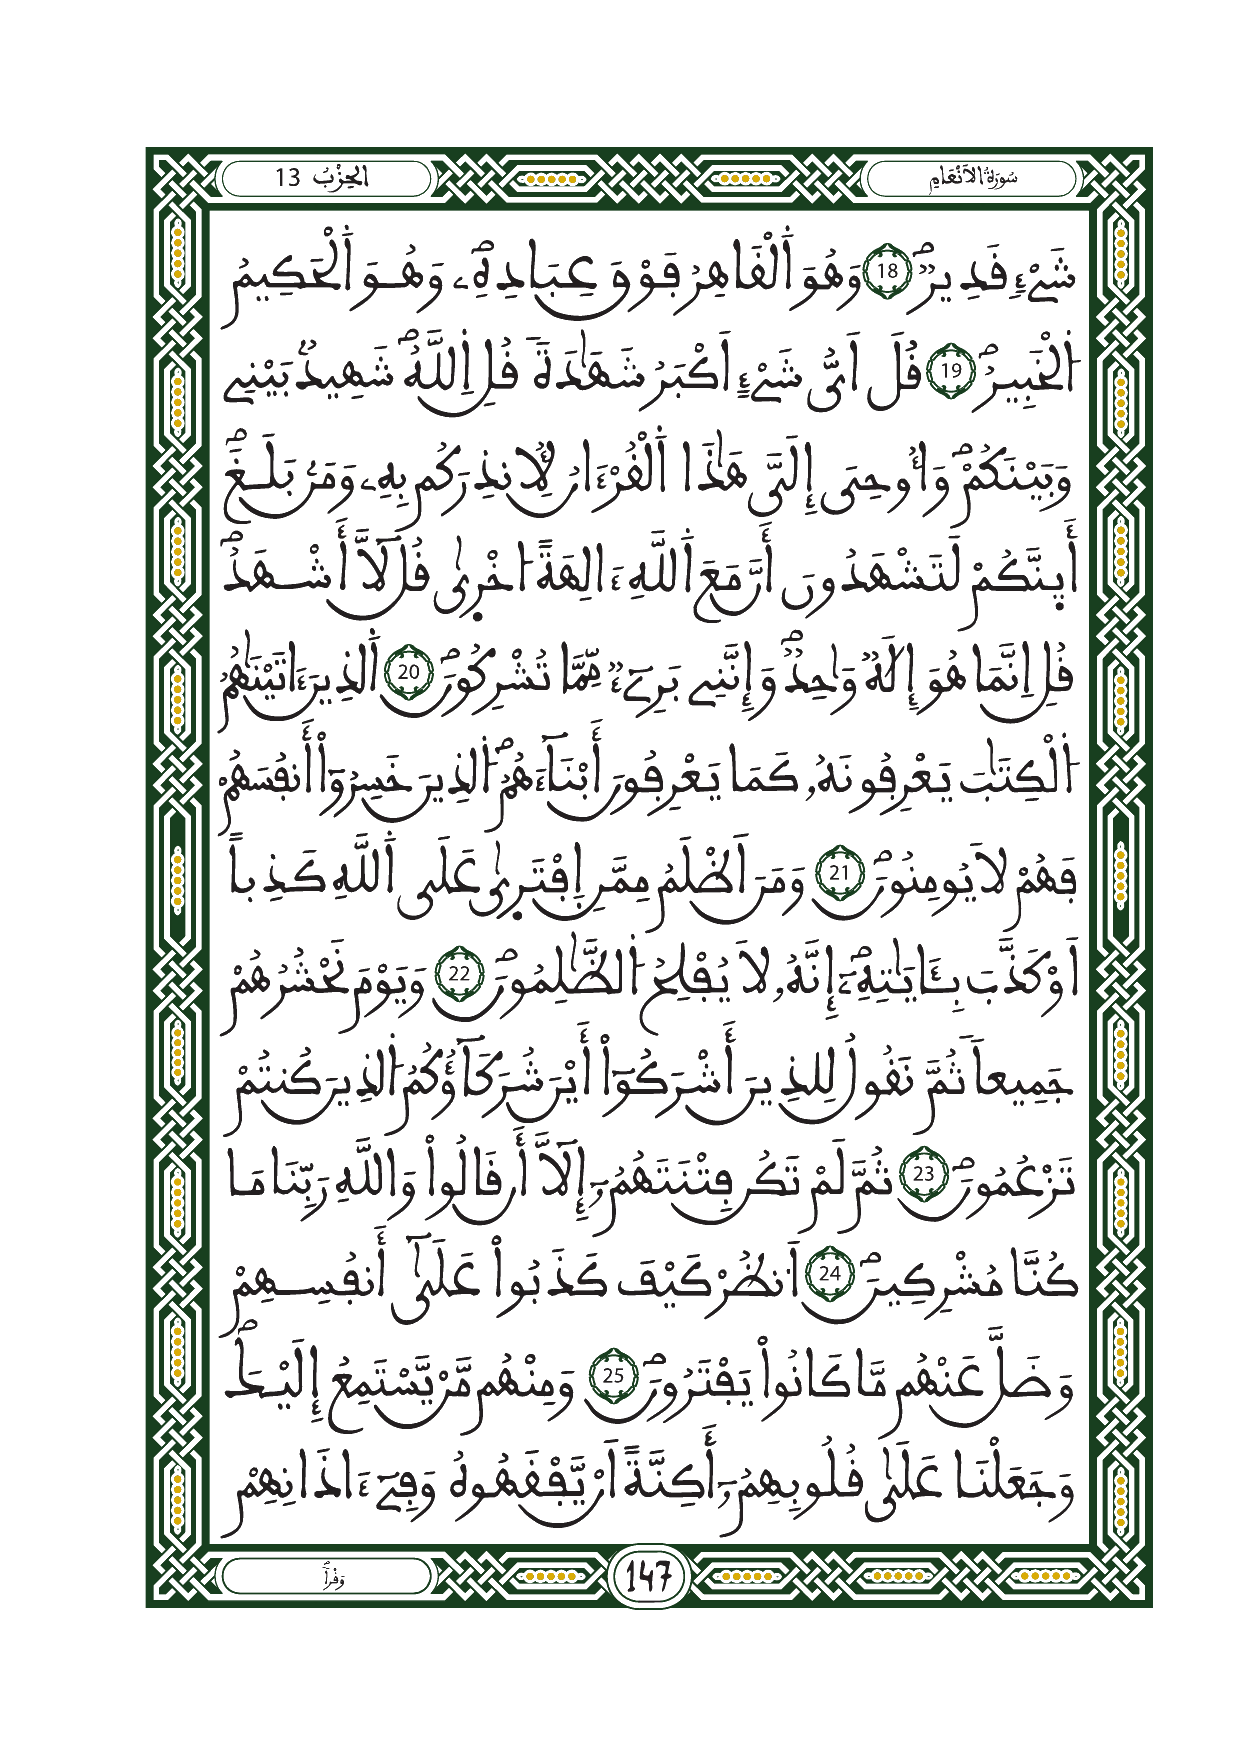 سُورَةُ الْأَنْعَامِ
الْحِزْبُ 13
شَےْءٖ قَدِيرٌ 18 وَهُوَ اَ۬لْقَاهِرُ فَوْقَ عِبَادِهِۦ وَهُوَ اَ۬لْحَكِيمُ
اُ۬لْخَبِيرُ 19 قُلَ اَيُّ شَےْءٍ اَكْبَرُ شَهَٰدَةٗ قُلِ اِ۬للَّهُ شَهِيدُۢ بَيْنِے
وَبَيْنَكُمْ وَأُوحِىَ إِلَىَّ هَٰذَا اَ۬لْقُرْءَانُ لِأُنذِرَكُم بِهِۦ وَمَنۢ بَلَغَ
أَى۪نَّكُمْ لَتَشْهَدُونَ أَنَّ مَعَ اَ۬للَّهِ ءَالِهَةً ا۟خْر۪ىٰ قُل لَّآ أَشْهَدُ
قُلِ اِنَّمَا هُوَ إِلَٰهٞ وَٰحِدٞ وَإِنَّنِے بَرِےٓءٞ مِّمَّا تُشْرِكُونَ 20 اَ۬لذِينَ ءَاتَيْنَٰهُمُ
اُ۬لْكِتَٰبَ يَعْرِفُونَهُۥ كَمَا يَعْرِفُونَ أَبْنَآءَهُمُ اُ۬لذِينَ خَسِرُوٓاْ أَنفُسَهُمْ
فَهُمْ لَا يُومِنُونَ 21 وَمَنَ اَظْلَمُ مِمَّنِ اِ۪فْتَر۪ىٰ عَلَى اَ۬للَّهِ كَذِباً
اَوْ كَذَّبَ بِـَٔايَٰتِهِۦٓ إِنَّهُۥ لَا يُفْلِحُ اُ۬لظَّٰلِمُونَ 22 وَيَوْمَ نَحْشُرُهُمْ
جَمِيعاٗ ثُمَّ نَقُولُ لِلذِينَ أَشْرَكُوٓاْ أَيْنَ شُرَكَآؤُكُمُ اُ۬لذِينَ كُنتُمْ
تَزْعُمُونَ 23 ثُمَّ لَمْ تَكُن فِتْنَتَهُمُۥٓ إِلَّآ أَن قَالُواْ وَاللَّهِ رَبِّنَا مَا
كُنَّا مُشْرِكِينَ 24 اَ۟نظُرْ كَيْفَ كَذَبُواْ عَلَىٰٓ أَنفُسِهِمْ
وَضَلَّ عَنْهُم مَّا كَانُواْ يَفْتَرُونَ 25 وَمِنْهُم مَّنْ يَّسْتَمِعُ إِلَيْكَ
وَجَعَلْنَا عَلَىٰ قُلُوبِهِمُۥٓ أَكِنَّةً اَنْ يَّفْقَهُوهُ وَفِےٓ ءَاذَانِهِمْ
وَقْراٗ
147